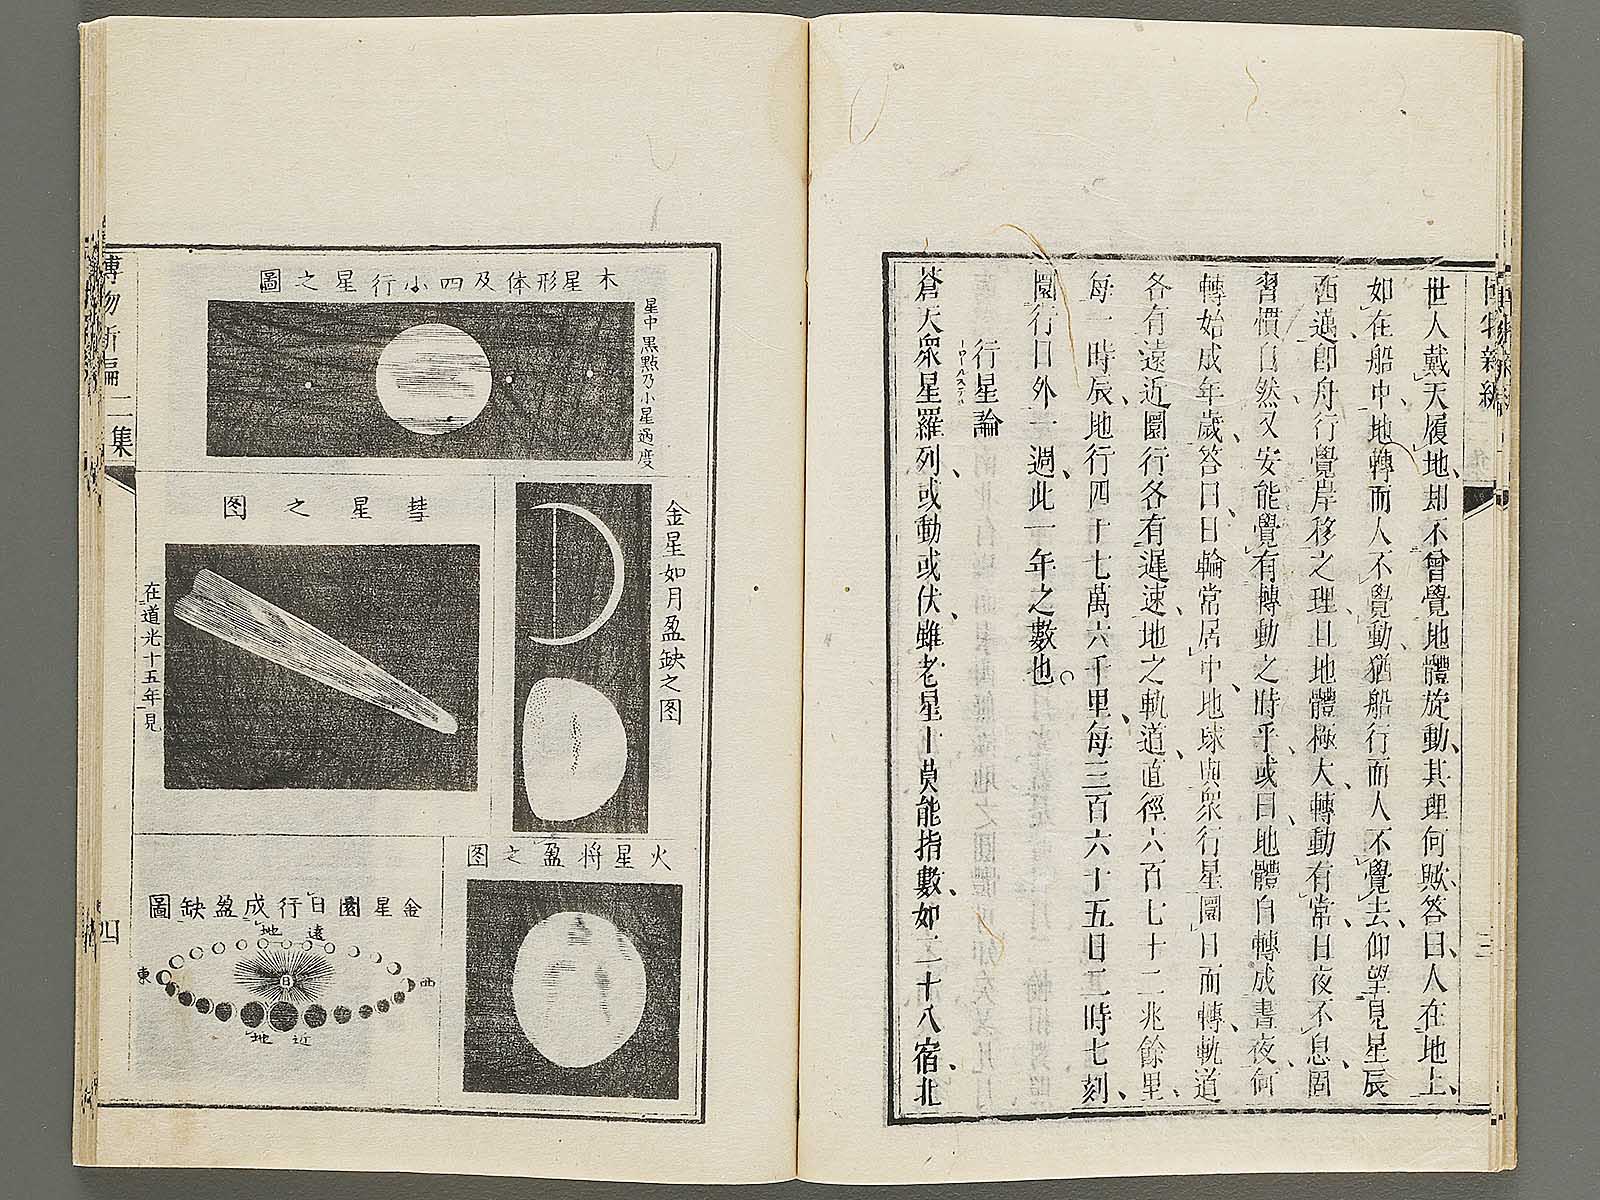 世人戴天履地、却不曾覺地體旋動、其理何歟、答曰、人在地上、
如在船中、地轉而人不覺動、猶船行而人不覺去、仰望見星辰
西邁、卽舟行覺岸移之理、且地體極大、轉動有常、日夜不息、固
習慣自然、又安能覺有轉動之時乎、或曰、地體自轉成晝夜、何
轉始成年歲、答曰、日輪常居中、地球與衆行星圜日而轉、軌道
各有遠近、圜行各有遲速、地之軌道、直徑六百七十二兆餘里、
每一時辰、地行四十七萬六千里、每三百六十五日二時七刻、
圜行日外一週、此一年之數也。
行星論
蒼天衆星羅列、或動或伏、雖老星士莫能指數、如二十八宿、北
三
木星形体及四小行星之圖
星中黑點乃小星過度
金星如月盈缺之图
彗星之图
在道光十五年見
火星将盈之图
金星圜日行成盈缺圖
遠地
東
日
西
近地
博物新編二集
四